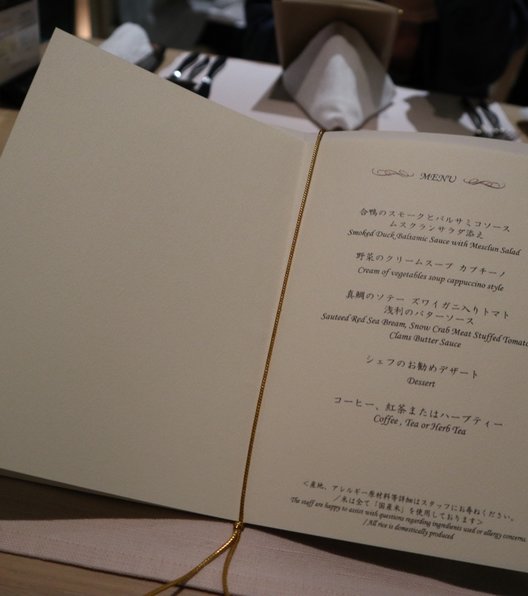 MENU
合鴨のスモークとバルサミコソース
ムスクランサラダ添え
Smoked Duck Balsamic Sauce with Mesclun Salad
野菜のクリームスープ カプチーノ
Cream of vegetables soup cappuccino style
真鯛のソテー ズワイガニ入りトマト
浅利のバターソース
Sauteed Red Sea Bream, Snow Crab Meat Stuffed Tomato
Clams Butter Sauce
シェフのお勧めデザート
Dessert
コーヒー、紅茶またはハーブティー
Coffee , Tea or Herb Tea
<産地、アレルギー原材料等詳細はスタッフにお尋ねください。
／米は全て「国産米」を使用しております>
The staff are happy to assist with questions regarding ingredients used or allergy concerns
/ All rice is domestically produced